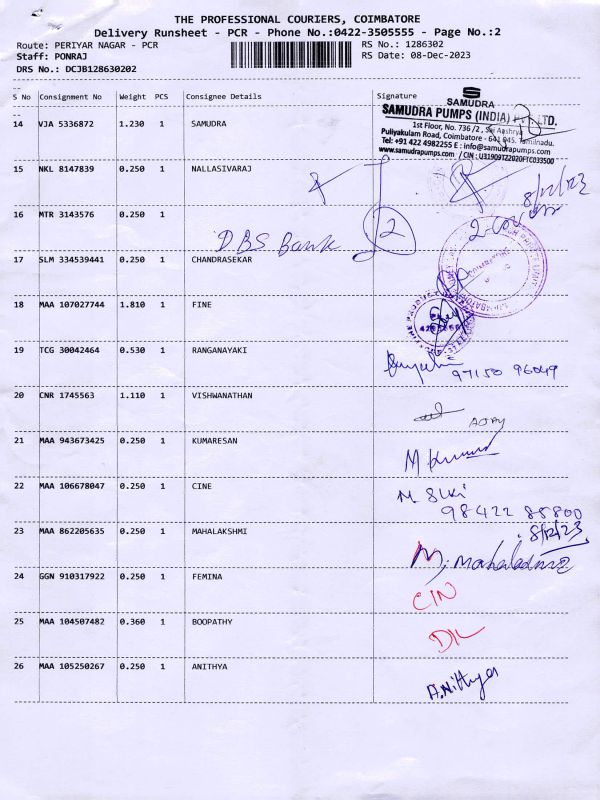 THE PROFESSIONAL COURIERS, COIMBATORE
Delivery Runsheet - PCR - Phone No.:0422-3505555 - Page No.:2
Route: PERIYAR NAGAR - PCR RS No.: 1286302
Staff: PONRAJ RS Date: 08-Dec-2023
DRS No.: DCJB128630202
S No Consignment No Weight PCS Consignee Details Signature
SAMUDRA
SAMUDRA PUMPS (INDIA) PVT LTD.
14 VJA 5336872 1.230 1 SAMUDRA
1st Floor, No. 736/2, Sai Aashray
Puliyakulam Road, Coimbatore - 641 045. Tamilnadu.
Tel: +91 422 4982255 E : info@samudrapumps.com
www.samudrapumps.com / CIN : U31909TZ2020FTC033500
15 NKL 8147839 0.250 1 NALLASIVARAJ
8/12/23
16 MTR 3143576 0.250 1
DBS Bank 2
17 SLM 334539441 0.250 1 CHANDRASEKAR
18 MAA 107027744 1.810 1 FINE
19 TCG 30042464 0.530 1 RANGANAYAKI
97150 96049
20 CNR 1745563 1.110 1 VISHWANATHAN
AJAY
21 MAA 943673425 0.250 1 KUMARESAN
22 MAA 106678047 0.250 1 CINE
98422 85800
8/12/23
23 MAA 862205635 0.250 1 MAHALAKSHMI
24 GGN 910317922 0.250 1 FEMINA
CIN
25 MAA 104507482 0.360 1 BOOPATHY
26 MAA 105250267 0.250 1 ANITHYA
A.Nithya